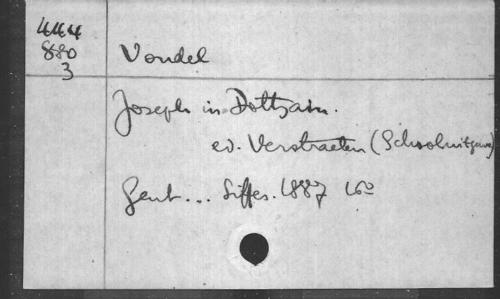 444
880
3
Vondel
Joseph in Dothan.
ed. Verstraeten (Schooluitgave)
Gent... Siffer. 1887 16°